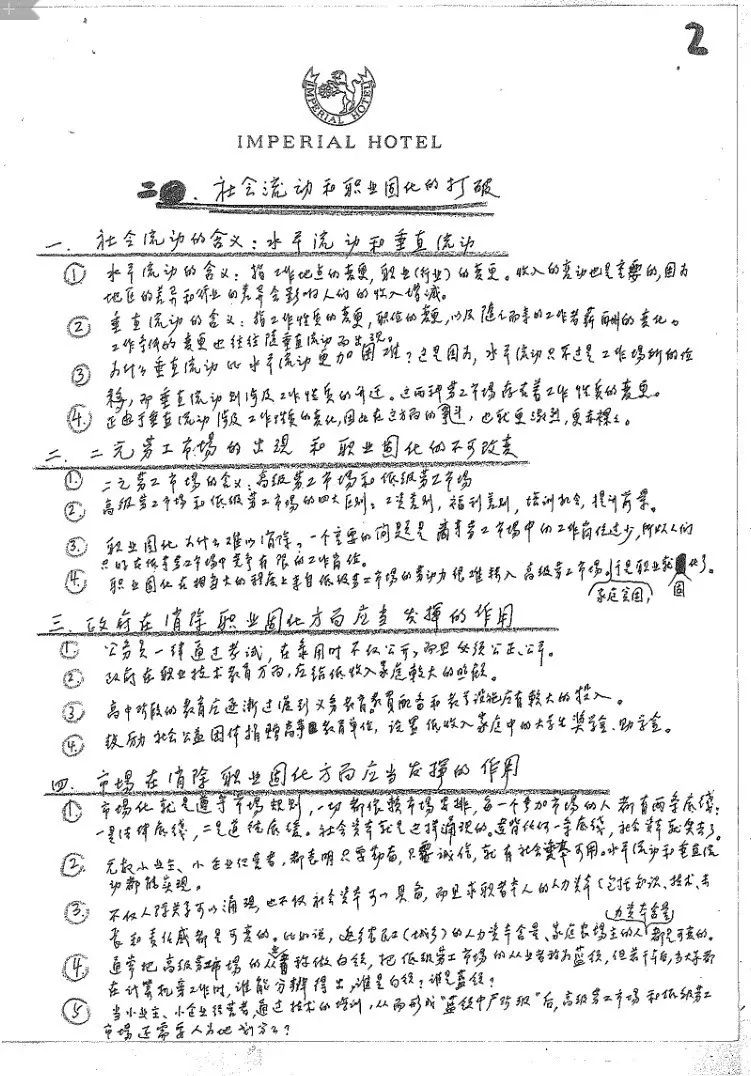 2
IMPERIAL HOTEL
IMPERIAL HOTEL
二 . 社会流动和职业固化的打破
一 . 社会流动的含义：水平流动和垂直流动
① 水平流动的含义：指工作地点的变更，职业（行业）的变更。收入的变动也是重要的，因为
地区的差异和行业的差异会影响人们的收入增减。
② 垂直流动的含义：指工作性质的变更，职位的变更，以及随之而来的工作者薪酬的变化。
工作等级的变更也往往随垂直流动而出现。
③ 为什么垂直流动比水平流动更加困难？这是因为，水平流动只不过是工作场所的位
移，而垂直流动则涉及工作性质的升迁。这两种劳工市场存在着工作性质的变更。
④. 正由于垂直流动涉及工作性质的变化，因此在这方面的 ，也就更激烈，更赤裸裸。
二 . 二元劳工市场的出现和职业固化的不可改变
①. 二元劳工市场的含义：高级劳工市场和低级劳工市场
②. 高级劳工市场和低级劳工市场的四大区别：工资差别，福利差别，培训机会，提升前景。
③. 职业固化为什么难以消除。一个重要的问题是高级劳工市场中的工作岗位过少，所以人们
只好在低等劳工市场中竞争有限的工作岗位。
④. 职业固化在相当大的程度上来自低级劳工市场的劳动力很难转入高级劳工市场。于是职业就 化了。
家庭贫困， 固
三 . 政府在消除职业固化方面应当发挥的作用
①. 公务员一律通过考试，在录用时不仅公开，而且必须公正、公平。
②. 政府在职业技术教育方面，应给低收入家庭较大的照顾。
③. 高中阶段的教育应逐渐过渡到义务教育，教员配备和教学设施应有较大的投入。
④. 鼓励社会公益团体捐赠高等教育单位，设置低收入家庭中的大学生奖学金、助学金。
四 . 市场在消除职业固化方面应当发挥的作用
①. 市场化就是遵守市场规则，一切都依赖市场安排，每一个参加市场的人都有两条底线：
一是法律底线，二是道德底线。社会资本就是这样涌现的。违背任何一条底线，社会资本就失去了。
②. 无数小业主、小企业经营者，都表明只要勤奋，只要诚信，就有社会资本可用。水平流动和垂直流
动都能实现。
③. 不仅人际关系可以涌现，也不仅社会资本可以具备，而且求职者本人的人力资本（包括知识、技术、专
长和责任感都是可变的。比如说，返乡农民工（城乡）的人力资本含量、家庭农场主的人 都是可变的。
力资本含量
④. 通常把高级劳工市场的从 者称做白领，把低级劳工市场的从业者称为蓝领，但若干年后，当大家都
在计算机旁工作时，谁能分辨得出，谁是白领？谁是蓝领？
⑤ 当小业主、小企业经营者，通过技术的培训，从而形成“蓝领中产阶级”后，高级劳工市场和低级劳工
市场还需要人为地划分么？